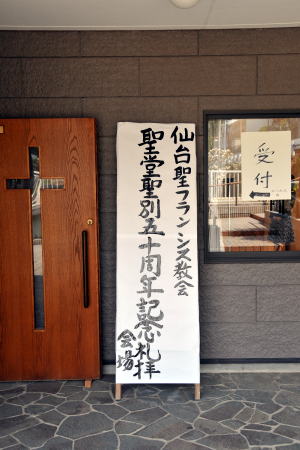 仙台聖フランシス教会
聖堂聖別五十周年記念礼拝
会場
受付